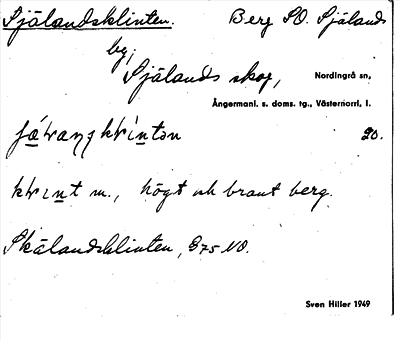 Själandsklinten. Berg SO. Själands
by,
Själands skog, Nordingrå sn,
Ångermanl. s. doms. tg., Västernorrl. l.
20.
klint m., högt och brant berg.
Skälandsklinten, G75 NO.
Sven Hiller 1949